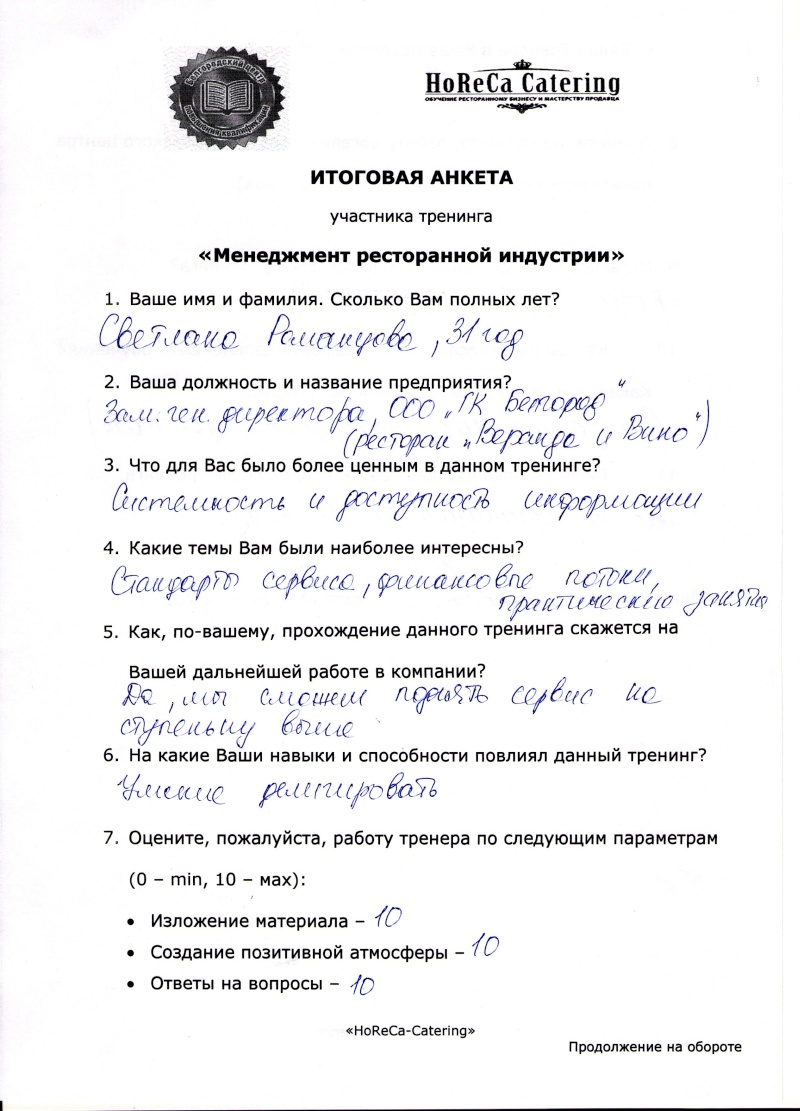 Белгородский центр
повышения квалификации
HoReCa Catering
ОБУЧЕНИЕ РЕСТОРАННОМУ БИЗНЕСУ И МАСТЕРСТВУ ПРОДАВЦА
ИТОГОВАЯ АНКЕТА
участника тренинга
«Менеджмент ресторанной индустрии»
1. Ваше имя и фамилия. Сколько Вам полных лет?
Светлана Романцова, 31 год
2. Ваша должность и название предприятия?
Зам. ген. директора, ООО "ГК Белгород"
(ресторан "Веранда и Вино")
3. Что для Вас было более ценным в данном тренинге?
Системность и доступность информации
4. Какие темы Вам были наиболее интересны?
Стандарты сервиса, финансовые потоки,
практические занятия
5. Как, по-вашему, прохождение данного тренинга скажется на
Вашей дальнейшей работе в компании?
Да, мы сможем поднять сервис на
ступеньку выше
6. На какие Ваши навыки и способности повлиял данный тренинг?
Умение делигировать
7. Оцените, пожалуйста, работу тренера по следующим параметрам
(0 – min, 10 – мах):
• Изложение материала – 10
• Создание позитивной атмосферы – 10
• Ответы на вопросы – 10
«HoReCa-Catering»
Продолжение на обороте